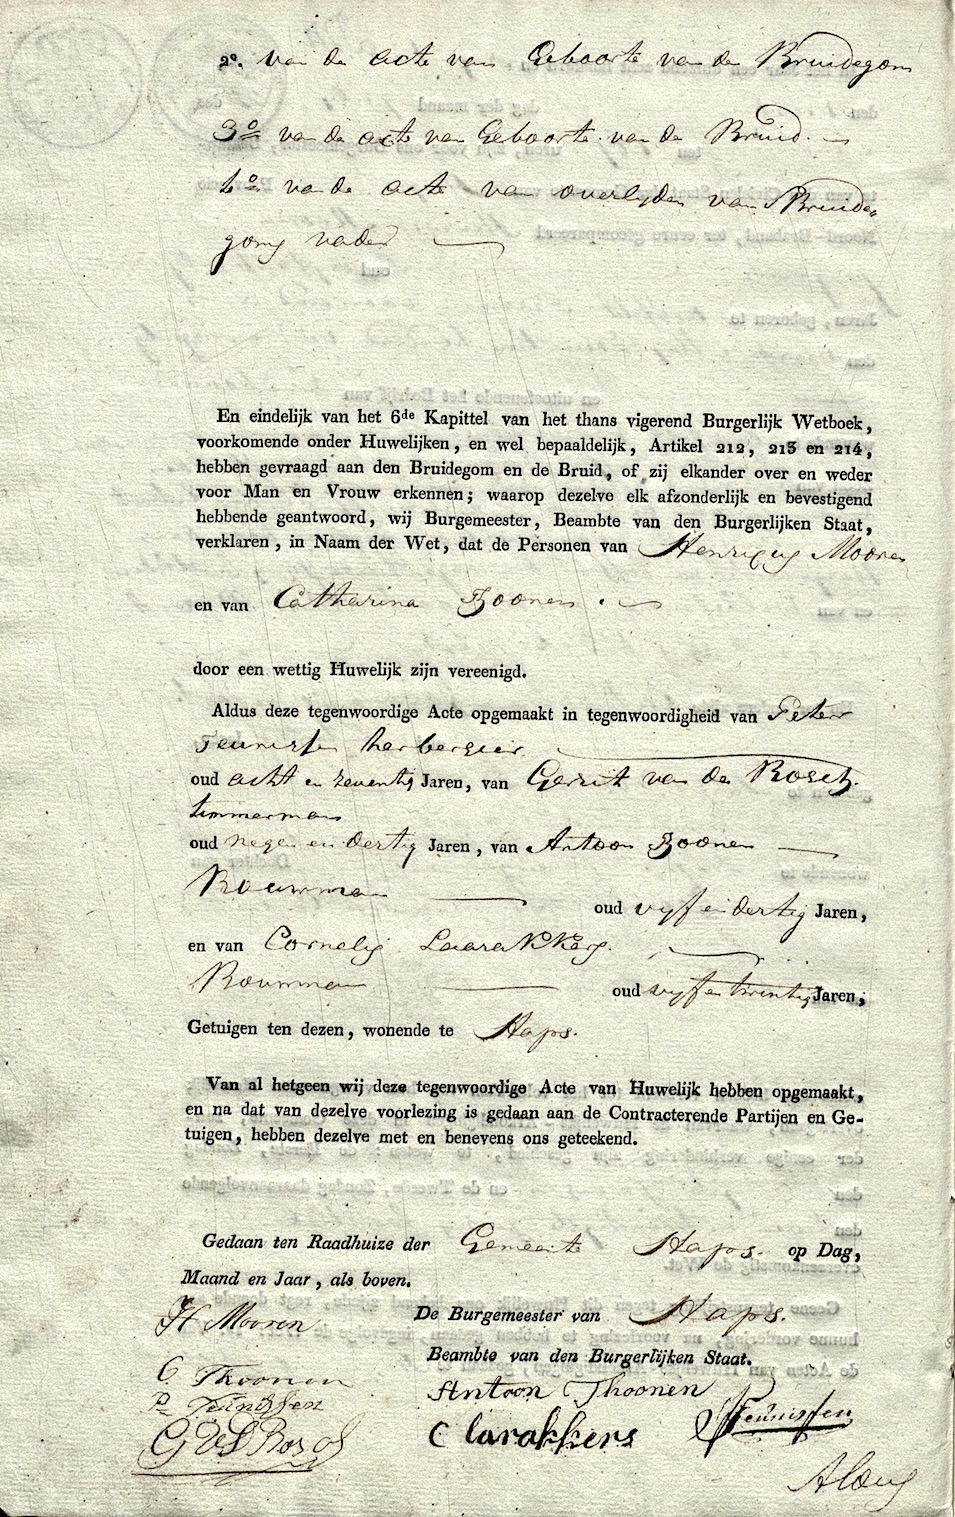 2o. van de acte van Geboorte van den Bruidegom
3o van de acte van Geboorte van de Bruid.
4o van de acte van overlyden van Bruide„
goms vader
En eindelijk van het 6de Kapittel van het thans vigerend Burgerlijk Wetboek,
voorkomende onder Huwelijken, en wel bepaaldelijk, Artikel 212, 213 en 214,
hebben gevraagd aan den Bruidegom en de Bruid, of zij elkander over en weder
voor Man en Vrouw erkennen; waarop dezelve elk afzonderlijk en bevestigend
hebbende geantwoord, wij Burgemeester, Beambte van den Burgerlijken Staat,
verklaren, in Naam der Wet, dat de Personen van Henricus Moonen
en van Catharina Thoonen.
door een wettig Huwelijk zijn vereenigd.
Aldus deze tegenwoordige Acte opgemaakt in tegenwoordigheid van Peter
Teunissen herbergier
oud acht en zeventig Jaren, van Gerrit van den Bosch
timmerman
oud negen en dertig Jaren, van Antoon Thoonen
Bouwman
oud vyf en dertig Jaren,
en van Cornelis Laarakkers.
Bouwman
oud vyf en twintig Jaren,
Getuigen ten dezen, wonende te Haps.
Van al hetgeen wij deze tegenwoordige Acte van Huwelijk hebben opgemaakt,
en na dat van dezelve voorlezing is gedaan aan de Contracterende Partijen en Ge-
tuigen, hebben dezelve met en benevens ons geteekend.
Gedaan ten Raadhuize der Gemeente Haps. op Dag,
Maand en Jaar, als boven.
H Moonen
De Burgemeester van Haps.
Beambte van den Burgerlijken Staat.
C Thoonen
Antoon Thoonen
P Teunissen
Teunissen
G V D Bosch
C larakkers